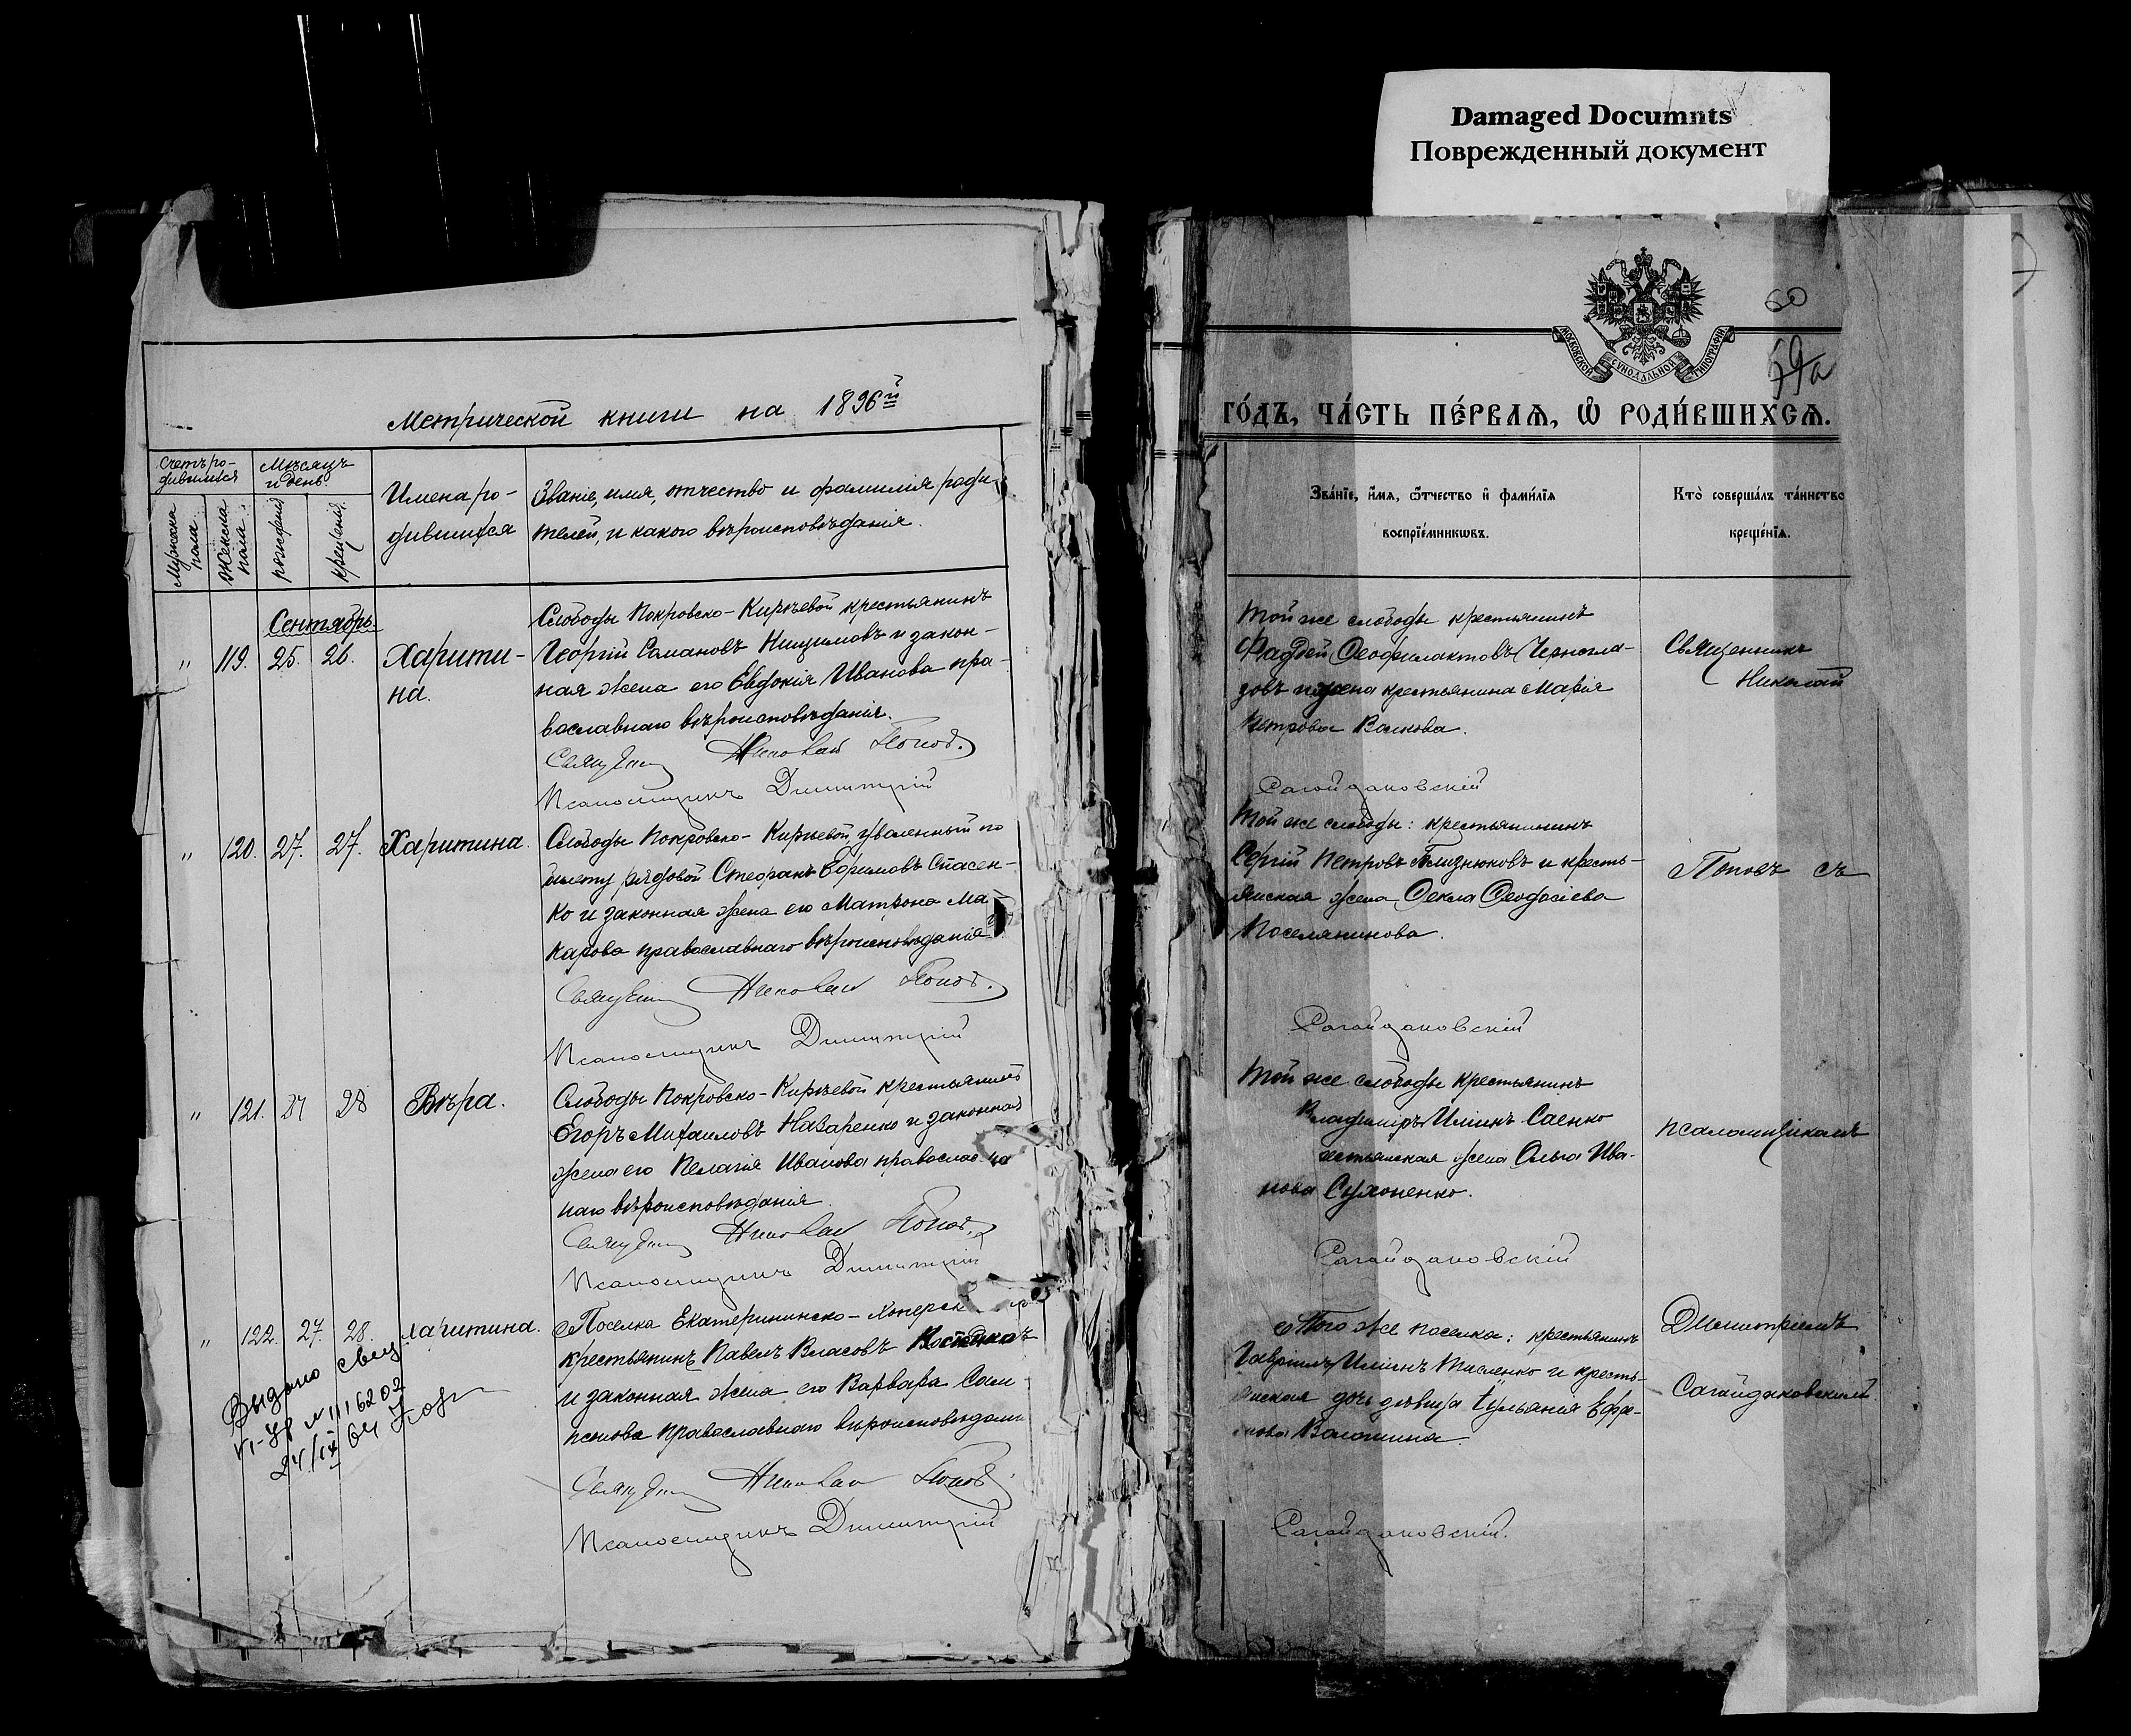 Damaged Documnts
Поврежденный документ
Метрической книги на 1896й
Счетъ ро-
дившихся
Мужска
пола.
Женска
пола.
Мѣсяцъ
и день.
рожденія
крещенія.
Имена ро-
дившихся
Званіе, имя, отчество и фамилія роди-
телей, и какого вѣроисповѣданія.
Сентябрь.
" 119. 25. 26. Харити-
на.
Слободы Покровско-Кирѣевой крестьянинъ
Георгій и закон-
ная жена его Евдокія Иванова пра-
вославнаго вѣроисповѣданія.
Николай Попов.
Псаломщикъ Димитрій
" 120. 27. 27. Харитина.
Слободы Покровско-Кирѣевой, уволенный по
билету рядовой Стефанъ Ефимовъ Спасен-
ко и законная жена его Матрона Ма-
карова православнаго вѣроисповѣданія
Николай Попов.
Псаломщикъ Димитрій
" 121. 27 28 Вѣра.
Слободы Покровско-Кирѣевой крестьянинъ
Егоръ Михаиловъ Назаренко и законная
жена его Пелагія Иванова православ-
наго вѣроисповѣданія.
Николай Попов.
Псаломщикъ Димитрій
" 122. 27. 28. Харитина.
Поселка Екатерининско-Хоперск
крестьянинъ Павелъ Власовъ
и законная жена его Варвара Сам-
псонова православнаго вѣроисповѣдан
Николай Попов
Псаломщикъ Димитрій
Выдано свид
VI-УР № 1116202
24/IX 64
60
59а
МОСКОВСКОЙ СѴНОДАЛЬНОЙ ТИПОГРАФІИ
ГО́ДЪ, ЧА́СТЬ ПЕ́РВАѦ, Ѡ҆ РОДИ́ВШИХСѦ.
Зва́нїе, и҆́мѧ, ѻ҆́тчество и҆ фами́лїѧ
воспрїе́мникѡвъ.
Кто̀ соверша́лъ та́инство
креще́нїѧ.
Той же слободы крестьянинъ
Фаддей Феофилактовъ Чернола-
зовъ и жена крестьянина Марія
Петрова Волкова.
Сагайдаковскій
Священникъ
Николай
Той же слободы: крестьянинъ
Сергій Петровъ Близнюковъ и кресть-
янская жена Фекла Феодосіева
Поселянинова.
Сагайдаковскій
Поповъ съ
Той же слободы крестьянинъ
Владиміръ Ильинъ Саенко
естьянская жена Ольга Ива-
нова Сухоненко.
Сагайдаковскій
псаломщикомъ
Того же поселка: крестьянинъ
Гавріилъ Ильинъ Тисленко и кресть-
янская дочь дѣвица Ульянія Ефи-
мова Волошина.
Сагайдаковскій.
Димитріемъ
Сагайдаковскимъ.